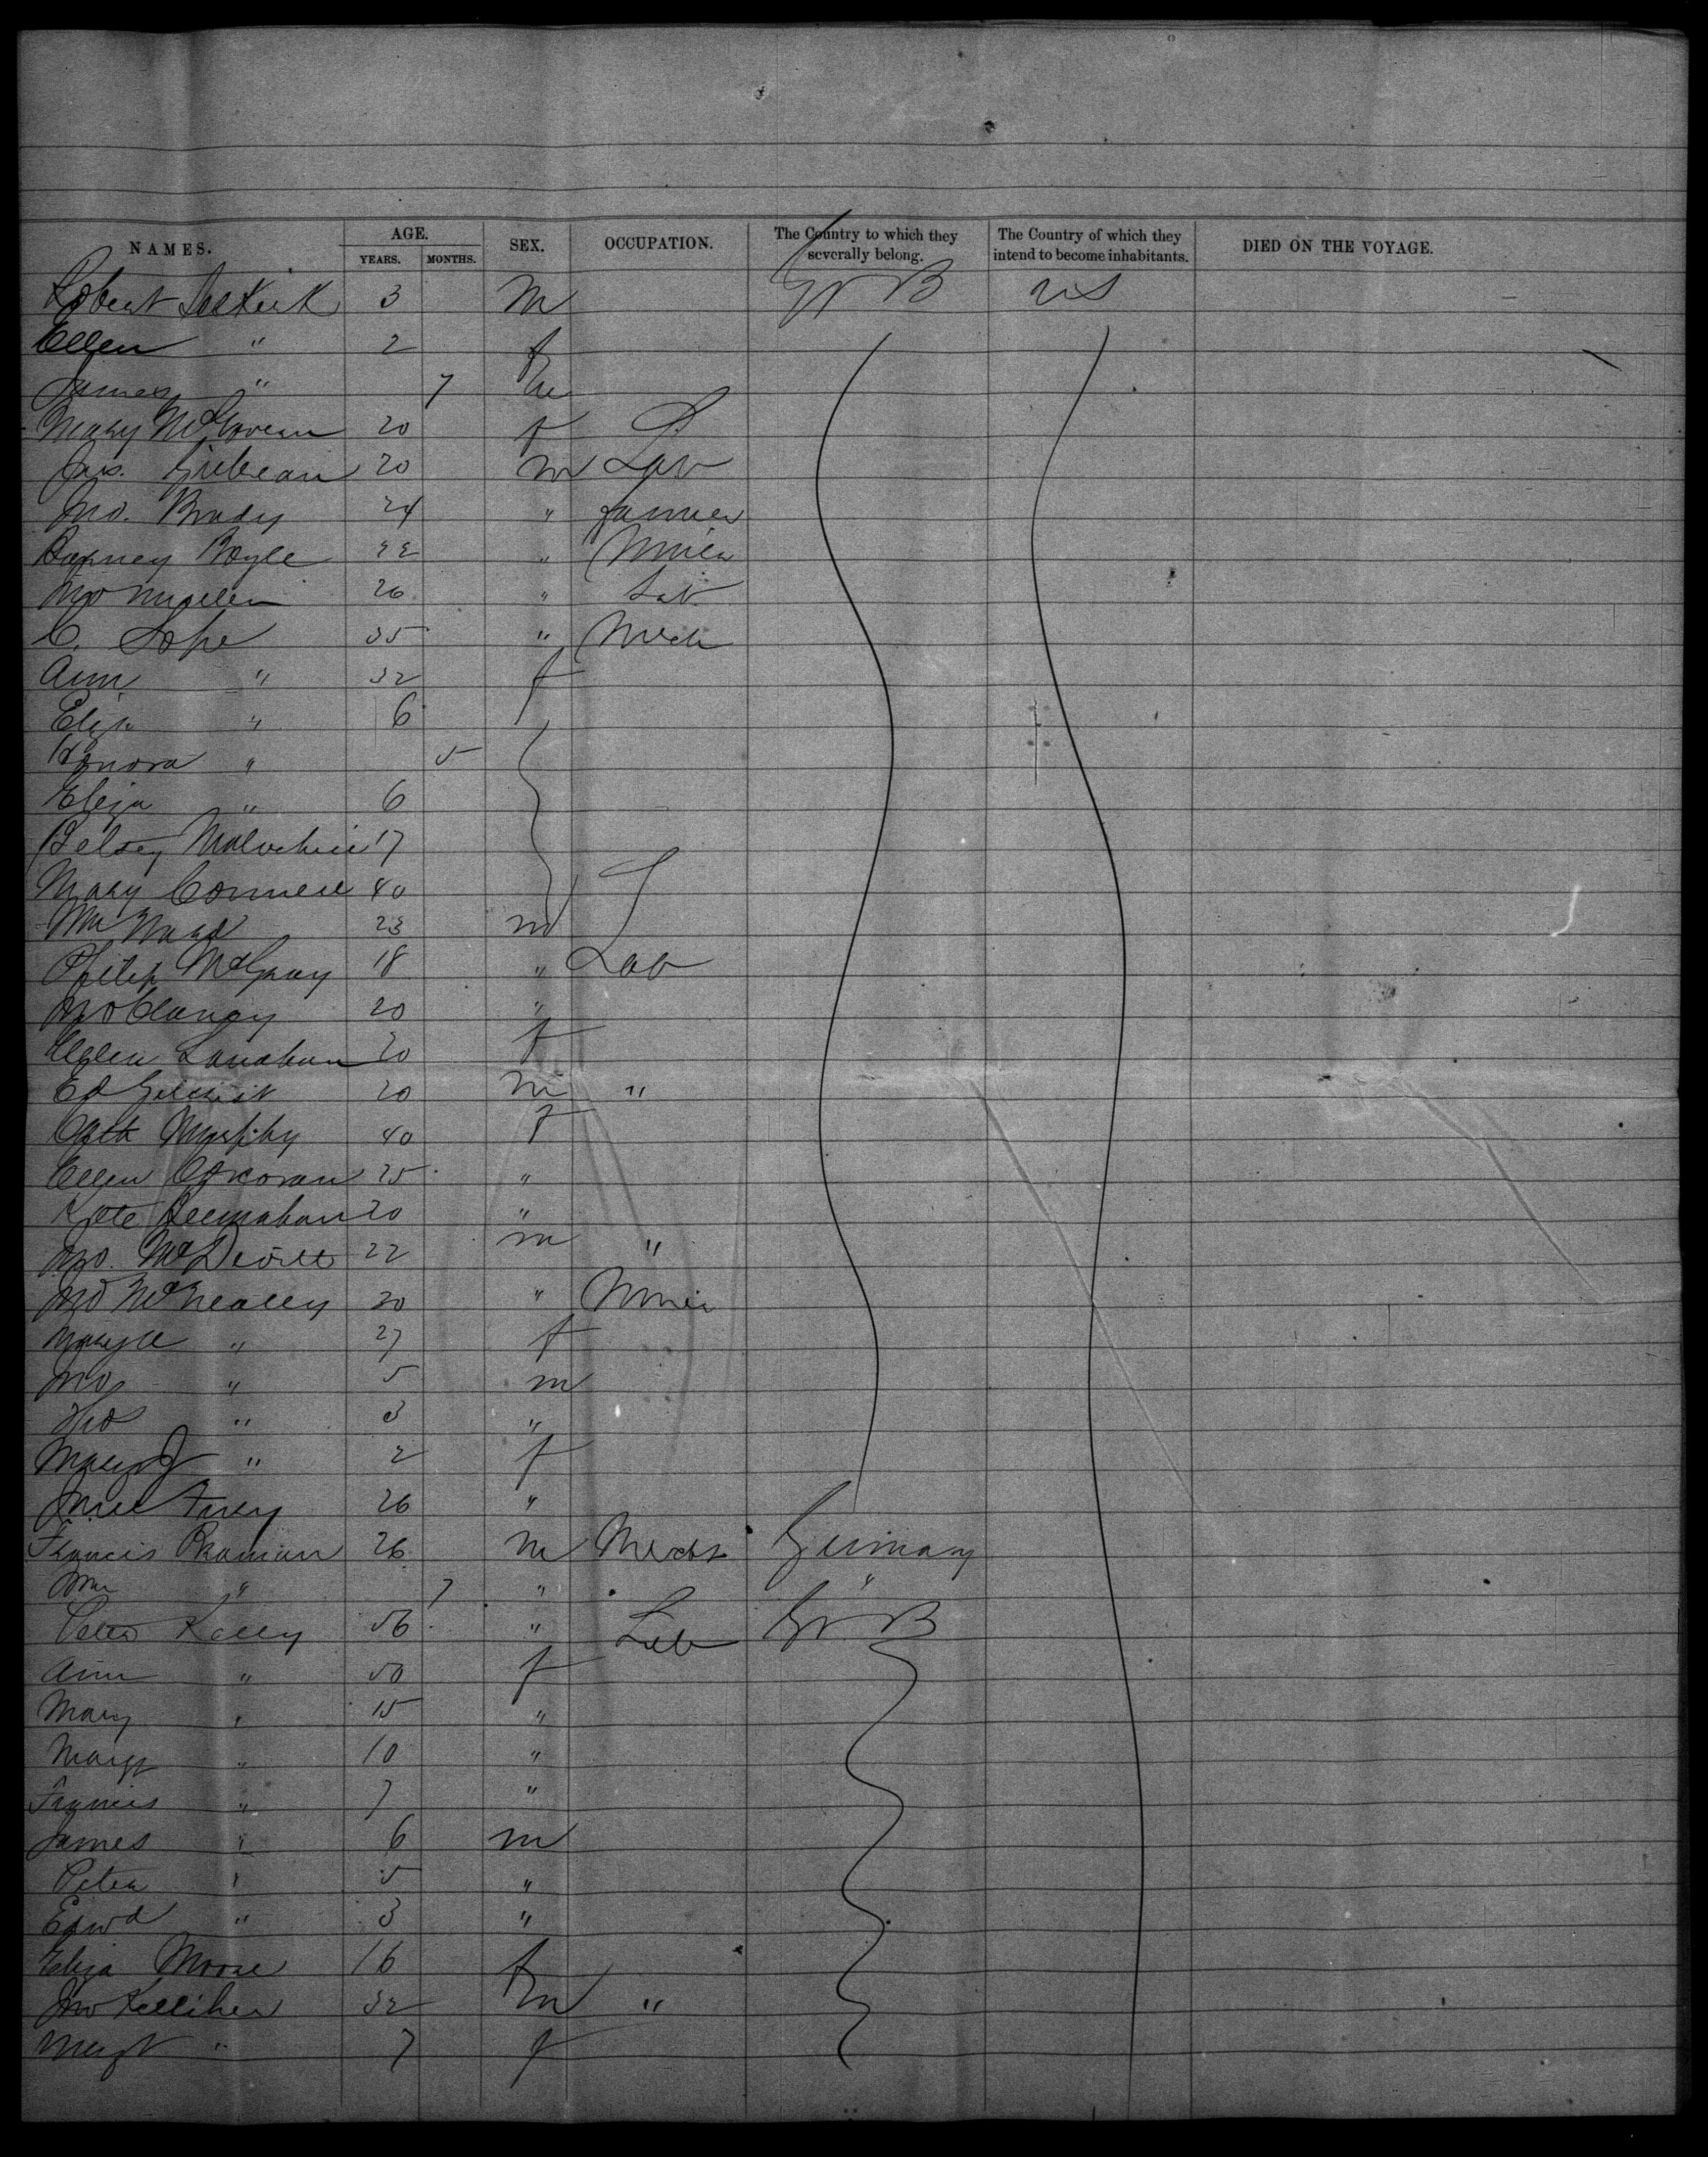 NAMES. AGE. SEX. OCCUPATION. The Country to which they severally belong. The Country of which they intend to become inhabitants. DIED ON THE VOYAGE.
YEARS. MONTHS.
Robert 3 m Gr B US
Ellen " 2 f
James " 7 m
Mary McGovern 20 f
Jas. 20 m Lab
Jno. Brady 24 " Farmer
Barney Boyle 22 " Miner
Jno 26 " Lab
C. Pope 35 " Mech
Ann " 32 f
Eliza " 6
Honora " 5
Eliza " 6
Betsey 17
Mary Connell 40
Wm Ward 23 m
Philip McGray 18 " Lab
Jno Clancy 20 "
Ellen Lanahan 20 f
Ed Gilchrist 20 m "
Cath Murphy 40 f
Ellen Corcoran 25 "
Kate 20 "
Jno. McDevitt 22 m "
Jno McNeally 30 " Miner
" 27 f
Jno " 5 m
Thos " 3 "
Mary J " 2 f
Furey 26 "
Francis 26 m Mecht Germany
Wm " 7 " "
Peter Kelly 56 " Lab Gr. B
Ann " 50 f
Mary " 15 "
Margt " 10 "
Francis " 7 "
James " 6 m
Peter " 5 "
Edwd " 3 "
Eliza Moore 16 f
Jno Kelliher 32 m "
Margt " 7 f